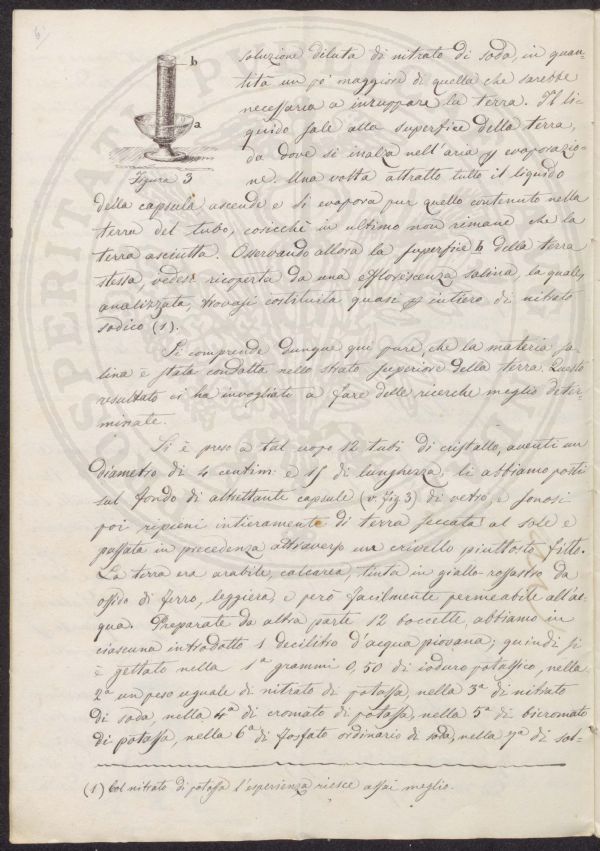 6
soluzione diluta di nitrato di soda, in quan-
tità un po' maggiore di quella che sarebbe
necessaria a inzuppare la terra. Il li-
quido sale alla superficie della terra,
da dove si inalza nell'aria p evaporazio-
ne. Una volta attratto tutto il liquido
b
a
Figura 3
della capsula ascende e si evapora pur quello contenuto nella
terra del tubo, cosicchè in ultimo non rimane che la
terra asciutta. Osservando allora la superficie b della terra
stessa, vedesi ricoperta da una efflorescenza salina, la quale,
analizzata, trovasi costituita quasi p intiero di nitrato
sodico (1).
Si comprende dunque qui pure, che la materia sa-
lina è stata condotta nello strato superiore della terra. Questo
resultato ci ha invogliati a fare delle ricerche meglio deter-
minate.
Si è preso a tal uopo 12 tubi di cristallo, aventi un
diametro di 4 centim: e 15 di lunghezza, li abbiamo posti
sul fondo di altrettante capsule (v. fig 3) di vetro, e sonosi
poi ripieni intieramente di terra seccata al sole e
passata in precedenza attraverso un crivello piuttosto fitto.
La terra era arabile, calcarea, tinta in giallo-rossastro da
ossido di ferro, leggiera, e però facilmente permeabile all'ac-
qua. Preparate da altra parte 12 boccette abbiamo in
ciascuna introdotto 1 decilitro d'acqua piovana; quindi si
è gettato nella 1ª grammi 0,50 di ioduro potassico, nella
2ª un peso uguale di nitrato di potassa, nella 3ª di nitrato
di soda, nella 4ª di cromato di potassa, nella 5ª di bicromato
di potassa, nella 6ª di fosfato ordinario di soda, nella 7ª di sol-
(1) Col nitrato di potassa l'esperienza riesce assai meglio.